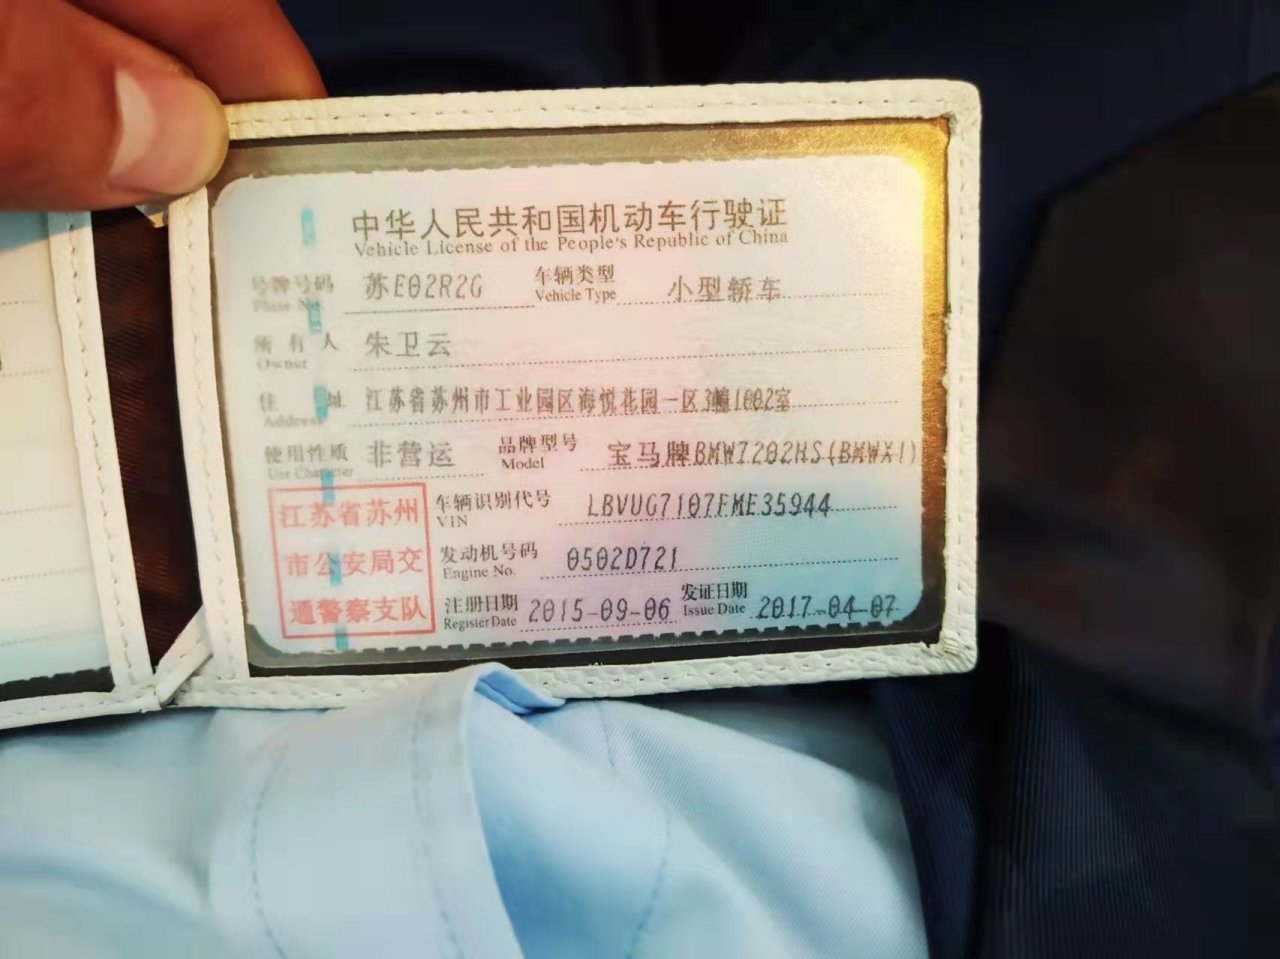 中华人民共和国机动车行驶证
Vehicle License of the People's Republic of China
号牌号码 苏E02R2G 车辆类型 小型轿车
Plate No. Vehicle Type
所有人 朱卫云
Owner
住址 江苏省苏州市工业园区海悦花园一区3幢1002室
Address
使用性质 非营运 品牌型号 宝马牌BMW7202HS(BMWX1)
Use Character Model
江苏省苏州
市公安局交
通警察支队
车辆识别代号 LBVUG7107FME35944
VIN
发动机号码 0502D721
Engine No.
注册日期 2015-09-06 发证日期 2017-04-07
Register Date Issue Date